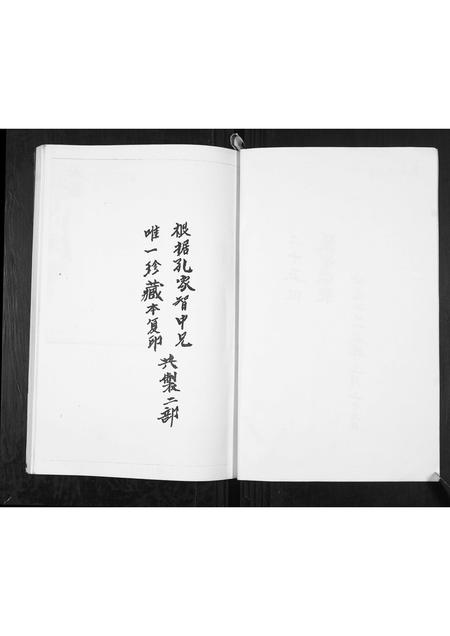 根据孔家智中兄
唯一珍藏本复印
共製二部